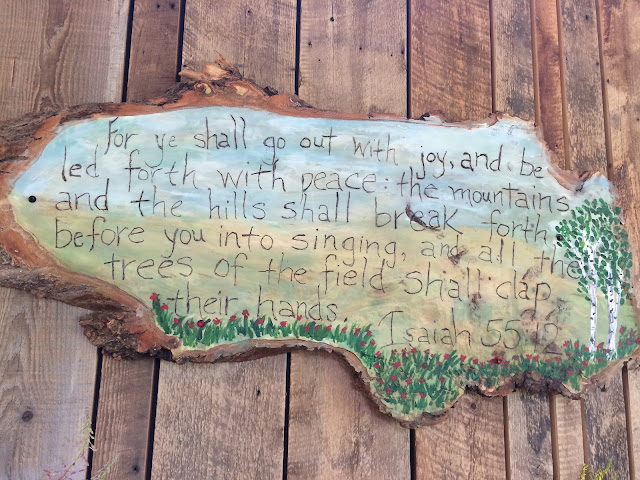 For ye shall go out with joy, and be
led forth with peace: the mountains
and the hills shall break forth
before you into singing, and all the
trees of the field shall clap
their hands. Isaiah 55:12